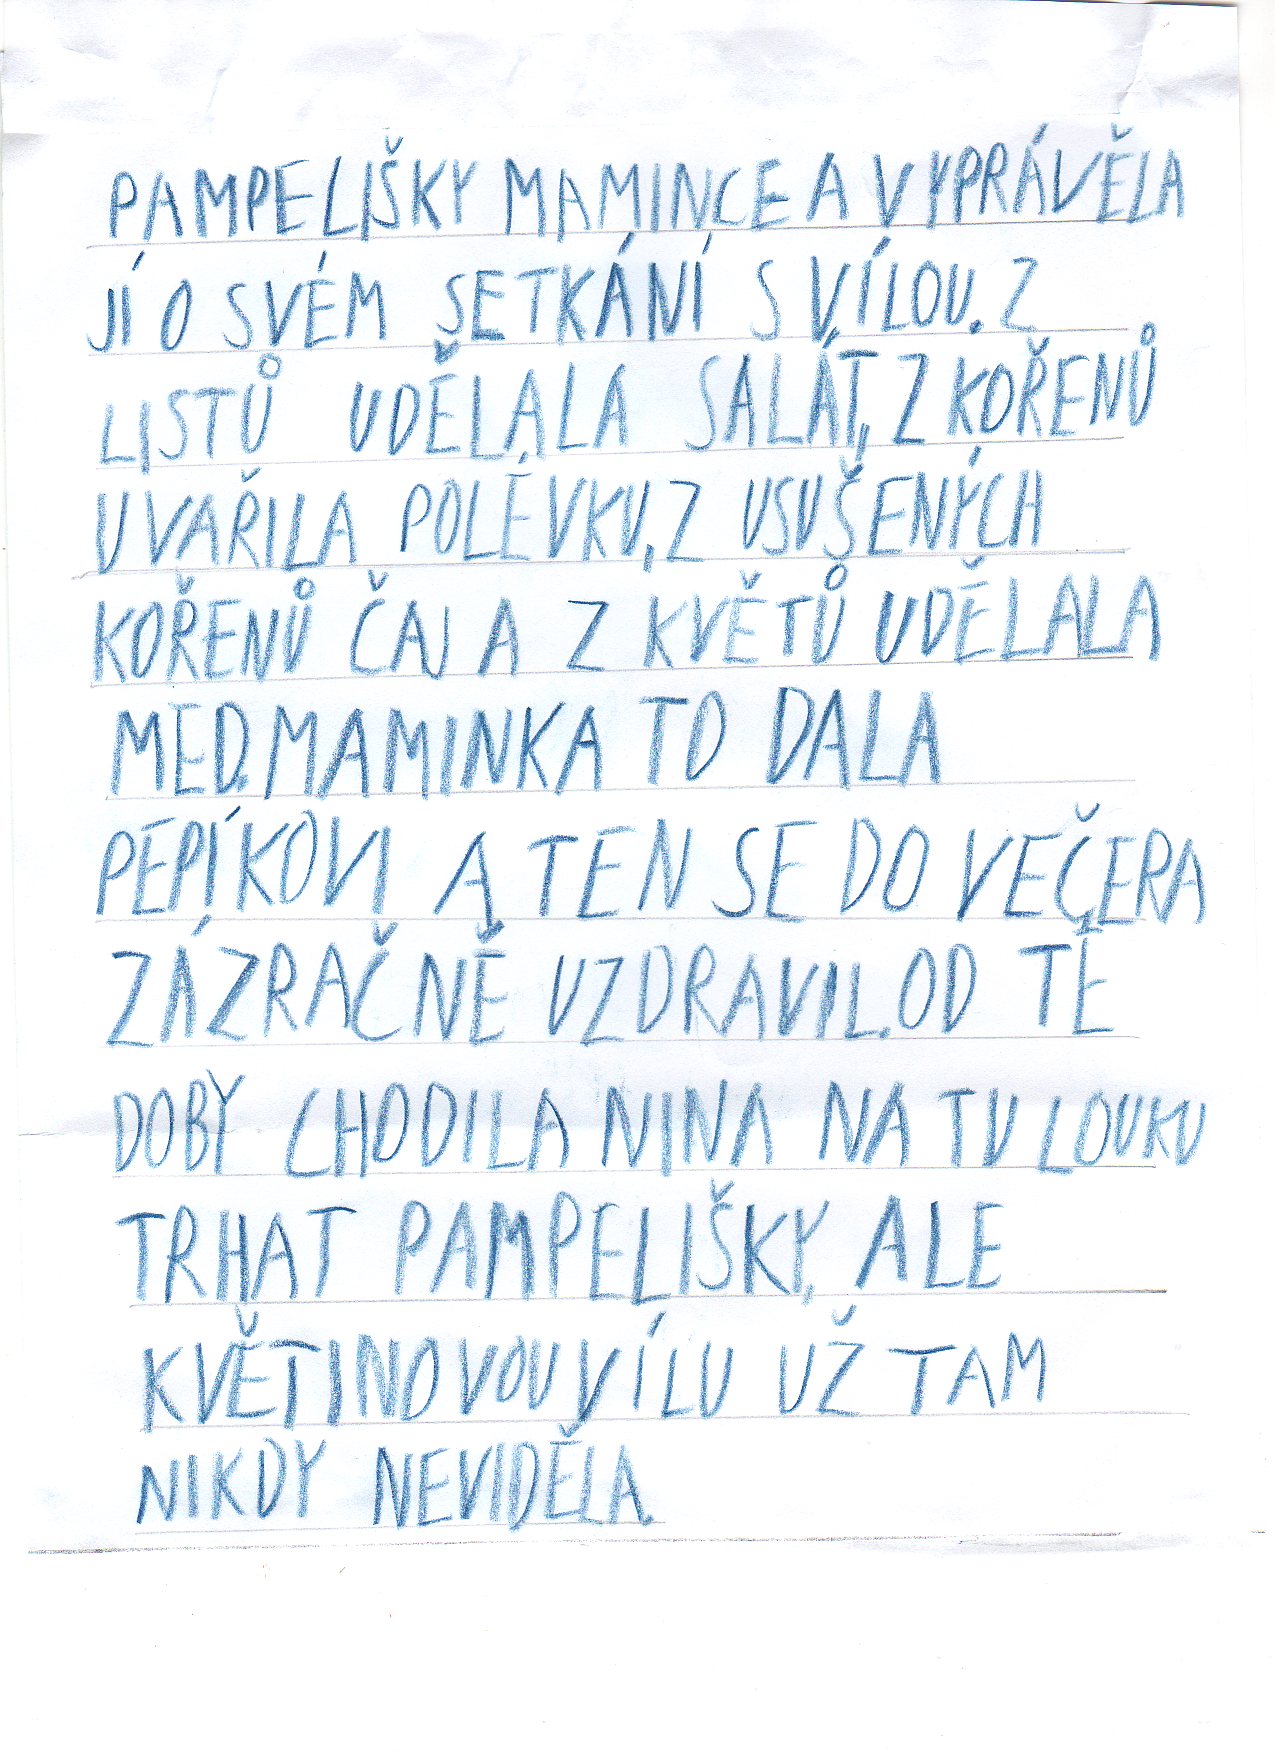 PAMPELIŠKY MAMINCE A VYPRÁVĚLA
JÍ O SVÉM SETKÁNÍ S VÍLOU. Z
LISTŮ UDĚLALA SALÁT, Z KOŘENŮ
UVAŘILA POLÉVKU, Z USUŠENÝCH
KOŘENŮ ČAJ A Z KVĚTŮ UDĚLALA
MED. MAMINKA TO DALA
PEPÍKOVI A TEN SE DO VEČERA
ZÁZRAČNĚ UZDRAVIL. OD TÉ
DOBY CHODILA NINA NA TU LOUKU
TRHAT PAMPELIŠKY, ALE
KVĚTINOVOU VÍLU UŽ TAM
NIKDY NEVIDĚLA.